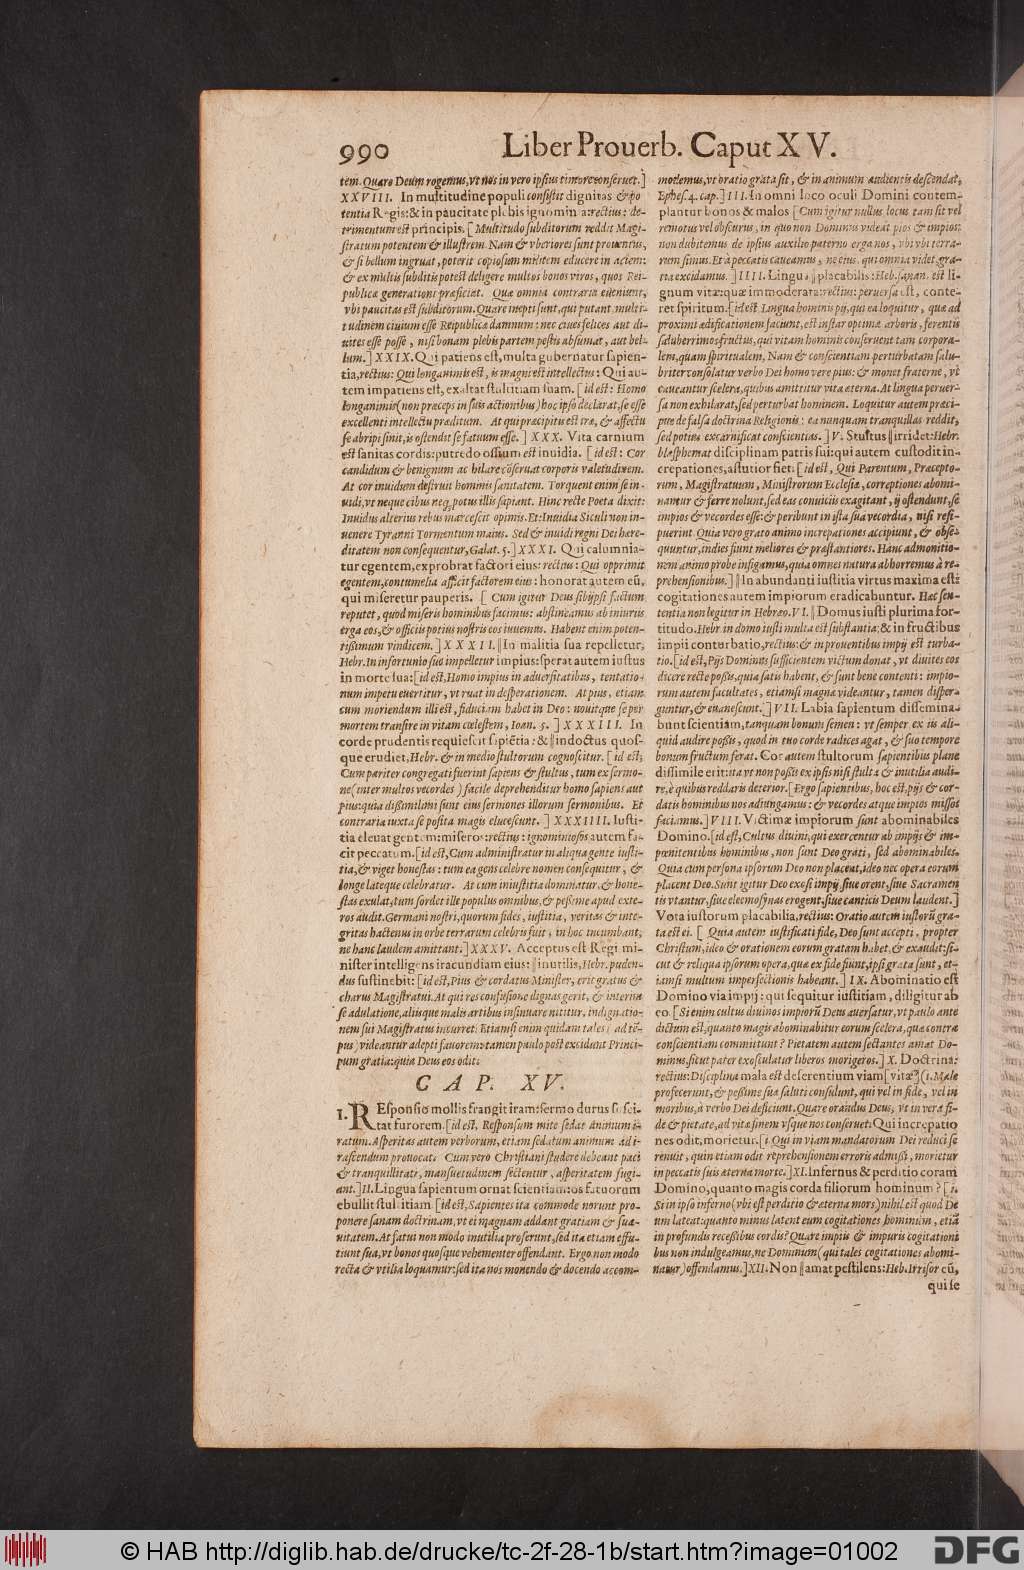 990
Liber Prouerb. Caput XV.
tem. Quare Deum rogemus, vt nos in vero ipsius timore conseruet.]
XXVIII. In multitudine populi consistit dignitas & po-
tentia Regis: & in paucitate plebis ignominia: rectius: de-
trimentum est principis. [Multitudo subditorum reddit Magi-
stratum potentem & illustrem. Nam & vberiores sunt prouentus,
& si bellum ingruat, poterit copiosum militem educere in aciem:
& ex multis subditis potest deligere multos bonos viros, quos Rei-
publicæ generationi præficiat. Quæ omnia contraria eueniunt,
vbi paucitas est subditorum. Quare inepti sunt, qui putant multi-
tudinem ciuium esse Reipublicæ damnum: nec ciues felices aut di-
uites esse posse, nisi bonam plebis partem pestis absumat, aut bel-
lum.] XXIX. Qui patiens est, multa gubernatur sapien-
tia, rectius: Qui longanimis est, is magni est intellectus: Qui au-
tem impatiens est, exaltat stultitiam suam. [id est: Homo
longanimis (non præceps in suis actionibus) hoc ipso declarat, se esse
excellenti intellectu præditum. At qui præcipitis est iræ, & affectu
se abripi sinit, is ostendit se fatuum esse.] XXX. Vita carnium
est sanitas cordis: putredo ossium est inuidia. [id est: Cor
candidum & benignum ac hilare cõseruat corporis valetudinem.
At cor inuidum destruit hominis sanitatem. Torquent enim se in-
uidi, vt neque cibus neq; potus illis sapiant. Hinc recte Poeta dixit:
Inuidus alterius rebus marcescit opimis. Et: Inuidia Siculi non in-
uenere Tyranni Tormentum maius. Sed & inuidi regni Dei here-
ditatem non consequentur, Galat. 5.] XXXI. Qui calumnia-
tur egentem, exprobrat factori eius: rectius: Qui opprimit
egentem, contumelia afficit factorem eius: honorat autem eũ,
qui miseretur pauperis. [Cum igitur Deus sibijpsi factum
reputet, quod miseris hominibus facimus: abstineamus ab iniuriis
erga eos, & officiis potius nostris eos iuuemus. Habent enim poten-
tissimum vindicem.] XXXII. ‖In malitia sua repelletur,
Hebr. In infortunio suo impelletur impius: sperat autem iustus
in morte sua: [id est, Homo impius in aduersitatibus, tentatio-
num impetu euertitur, vt ruat in desperationem. At pius, etiam
cum moriendum illi est, fiduciam habet in Deo: nouitque se per
mortem transire in vitam cœlestem, Ioan. 5.] XXXIII. In
corde prudentis requiescit sapiẽtia: & ‖indoctus quos-
que erudiet, Hebr. & in medio stultorum cognoscitur. [id est;
Cum pariter congregati fuerint sapiens & stultus, tum ex sermo-
ne (inter multos vecordes) facile deprehenditur homo sapiens aut
pius: quia dissimilimi sunt eius sermones illorum sermonibus. Et
contraria iuxta se posita magis elucescunt.] XXXIIII. Iusti-
tia eleuat gentem: miseros: rectius: ignominiosos autem fa-
cit peccatum. [id est, Cum administratur in aliqua gente iusti-
tia, & viget honestas: tum ea gens celebre nomen consequitur, &
longe lateque celebratur. At cum iniustitia dominatur, & hone-
stas exulat, tum sordet ille populus omnibus, & pessime apud exte-
ros audit. Germani nostri, quorum fides, iustitia, veritas & inte-
gritas hactenus in orbe terrarum celebris fuit, in hoc incumbant,
ne hanc laudem amittant.] XXXV. Acceptus est Regi mi-
nister intelligens: iracundiam eius: ‖inutilis, Hebr. puden-
dus sustinebit: [id est, Pius & cordatus Minister, erit gratus &
charus Magistratui. At qui res confusione dignas gerit, & interna
se adulatione, aliisque malis artibus insinuare nititur, indignatio-
nem sui Magistratus incurret. Etiamsi enim quidam tales (ad tẽ-
pus) videantur adepti fauorem: tamen paulo post excidunt Princi-
pum gratia: quia Deus eos odit.
CAP. XV.
I. REsponsio mollis frangit iram: sermo durus susci-
tat furorem. [id est, Responsum mite sedat animum i-
ratum. Asperitas autem verborum, etiam sedatum animum ad i-
rascendum prouocat. Cum vero Christiani studere debeant paci
& tranquillitati, mansuetudinem sectentur, asperitatem fugi-
ant.] II. Lingua sapientum ornat scientiam: os fatuorum
ebullit stultitiam [id est, Sapientes ita commode norunt pro-
ponere sanam doctrinam, vt ei magnam addant gratiam & sua-
uitatem. At fatui non modo inutilia proferunt, sed ita etiam effu-
tiunt sua, vt bonos quosque vehementer offendant. Ergo non modo
recta & vtilia loquamur: sed ita nos monendo & docendo accom-
modemus, vt oratio grata sit, & in animum audientis descendat,
Ephes. 4. cap.] III. In omni loco oculi Domini contem-
plantur bonos & malos [Cum igitur nullus locus tam sit vel
remotus vel obscurus, in quo non Dominus videat pios & impios:
non dubitemus de ipsius auxilio paterno erga nos, vbi vbi terra-
rum simus. Et à peccatis caueamus, ne eius, qui omnia videt, gra-
tia excidamus.] IIII. Lingua ‖placabilis: Heb. sanan. est li-
gnum vitæ: quæ immoderata: rectius: peruersa est, conte-
ret spiritum. [id est Lingua hominis pij, qui ea loquitur, quæ ad
proximi ædificationem faciunt, est instar optimæ arboris, ferentis
saluberrimos fructus, qui vitam hominis conseruent tam corpora-
lem, quam spiritualem. Nam & conscientiam perturbatam salu-
briter consolatur verbo Dei homo vere pius: & monet fraterne, vt
caueantur scelera, quibus amittitur vita æterna. At lingua peruer-
sa non exhilarat, sed perturbat hominem. Loquitur autem præci-
pue de falsa doctrina Religionis: ea nunquam tranquillas reddit,
sed potius excarnificat conscientias.] V. Stultus ‖irridet: Hebr.
blasphemat disciplinam patris sui: qui autem custodit in-
crepationes, astutior fiet: [id est, Qui Parentum, Præcepto-
rum, Magistratuum, Ministrorum Ecclesiæ, correptiones abomi-
nantur & ferre nolunt, sed eas conuiciis exagitant, ij ostendunt, se
impios & vecordes esse: & peribunt in ista sua vecordia, nisi resi-
puerint. Quia vero grato animo increpationes accipiunt, & obse-
quuntur, indies fiunt meliores & præstantiores. Hanc admonitio-
nem animo probe infigamus, quia omnes natura abhorremus à re-
prehensionibus.] ‖In abundanti iustitia virtus maxima est:
cogitationes autem impiorum eradicabuntur. Hæc sen-
tentia non legitur in Hebræo. VI. ‖Domus iusti plurima for-
titudo. Hebr. in domo iusti multa est substantia: & in fructibus
impii conturbatio, rectius: & in prouentibus impij est turba-
tio. [id est, Pijs Dominus sufficientem victum donat, vt diuites eos
dicere recte possis, quia satis habent, & sunt bene contenti: impio-
rum autem facultates, etiamsi magnæ videantur, tamen disper-
guntur, & euanescunt.] VII. Labia sapientum dissemina-
bunt scientiam, tanquam bonum semen: vt semper ex iis ali-
quid audire possis, quod in tuo corde radices agat, & suo tempore
bonum fructum ferat. Cor autem stultorum sapientibus plane
dissimile erit: ita vt non possis ex ipsis nisi stulta & inutilia audi-
re, è quibus reddaris deterior. [Ergo sapientibus, hoc est, pijs & cor-
datis hominibus nos adiungamus: & vecordes atque impios missos
faciamus.] VIII. Victimæ impiorum sunt abominabiles
Domino. [id est, Cultus diuini, qui exercentur ab impijs & im-
pœnitentibus hominibus, non sunt Deo grati, sed abominabiles.
Quia cum persona ipsorum Deo non placeat, ideo nec opera eorum
placent Deo. Sunt igitur Deo exosi impij, siue orent, siue Sacramen
tis vtantur, siue eleemosynas erogent, siue canticis Deum laudent.]
Vota iustorum placabilia, rectius: Oratio autem iustorũ gra-
ta est ei. [Quia autem iustificati fide, Deo sunt accepti, propter
Christum, ideo & orationem eorum gratam habet, & exaudit: si-
cut & reliqua ipsorum opera, quæ ex fide fiunt, ipsi grata sunt, et-
iamsi multum imperfectionis habeant.] IX. Abominatio est
Domino via impij: qui sequitur iustitiam, diligitur ab
eo. [Si enim cultus diuinos impiorũ Deus auersatur, vt paulo ante
dictum est, quanto magis abominabitur eorum scelera, quæ contra
conscientiam committunt? Pietatem autem sectantes amat Do-
minus, sicut pater exosculatur liberos morigeros.] X. Doctrina:
rectius: Disciplina mala est deserentium viam [vitæ] (i. Male
profecerunt, & pessime suæ saluti consulunt, qui vel in fide, vel in
moribus, à verbo Dei deficiunt. Quare orandus Deus, vt in vera fi-
de & pietate, ad vitæ finem vsque nos conseruet: Qui increpatio
nes odit, morietur. [i. Qui in viam mandatorum Dei reduci se
renuit, quin etiam odit reprehensionem erroris admissi, morietur
in peccatis suis æterna morte.] XI. Infernus & perditio coram
Domino, quanto magis corda filiorum hominum? [i.
Si in ipso inferno (vbi est perditio & æterna mors) nihil est quod De
um lateat: quanto minus latent eum cogitationes hominum, etiã
in profundis recessibus cordis? Quare impiis & impuris cogitationi
bus non indulgeamus, ne Dominum (qui tales cogitationes abomi-
natur) offendamus.] XII. Non ‖amat pestilens: Heb. Irrisor eũ,
qui se
© HAB http://diglib.hab.de/drucke/tc-2f-28-1b/start.htm?image=01002
DFG